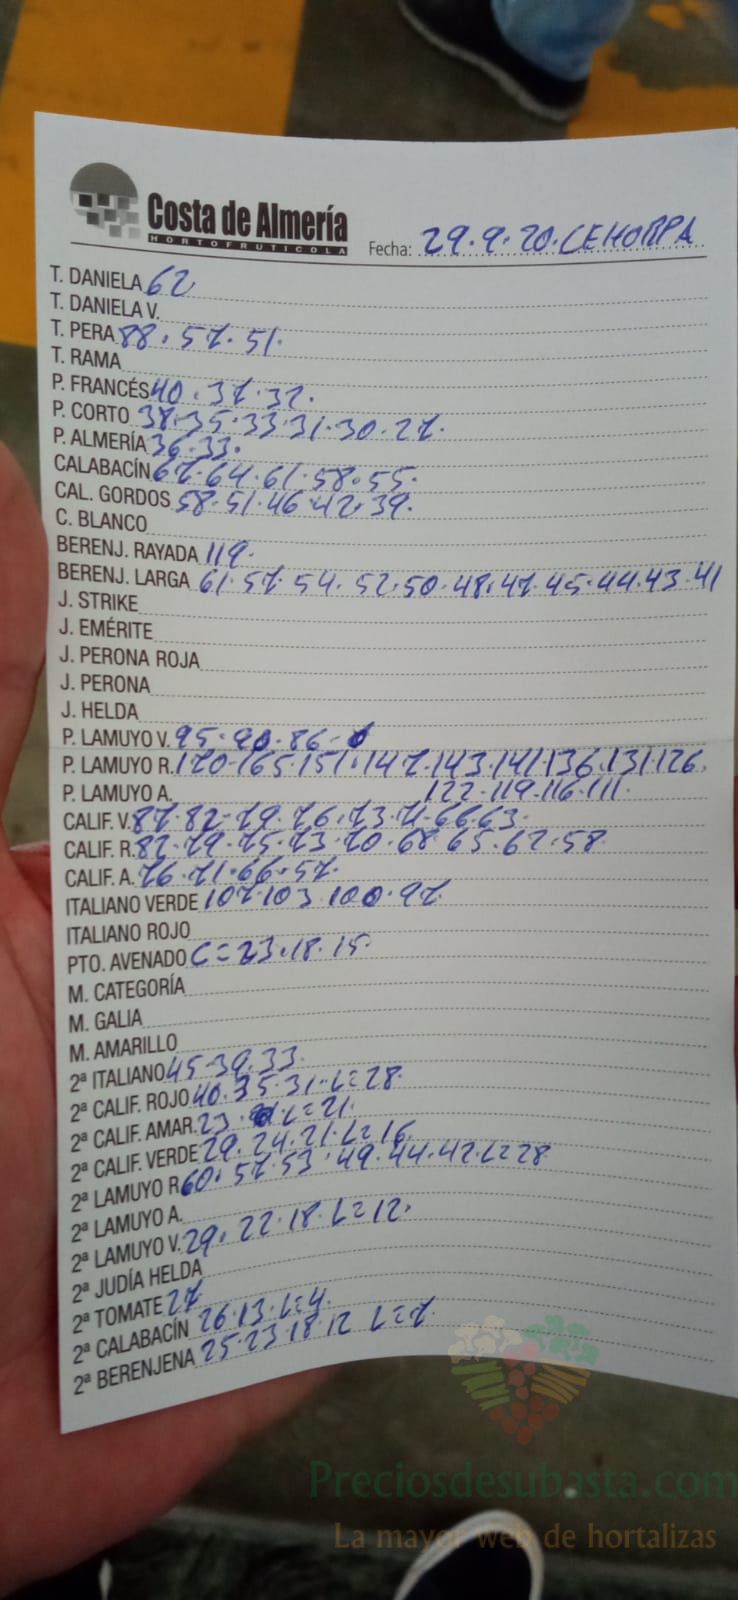 Costa de Almería
HORTOFRUTICOLA
Fecha: 29.9.20. CEHORPA
T. DANIELA 62
T. DANIELA V.
T. PERA 88. 57. 51.
T. RAMA
P. FRANCÉS 40. 37. 32.
P. CORTO 38. 35. 33. 31. 30. 27.
P. ALMERÍA 36. 33.
CALABACÍN 67. 64. 61. 58. 55.
CAL. GORDOS 58. 51. 46. 42. 39.
C. BLANCO
BERENJ. RAYADA 119.
BERENJ. LARGA 61. 57. 54. 52. 50. 48. 47. 45. 44. 43. 41
J. STRIKE
J. EMÉRITE
J. PERONA ROJA
J. PERONA
J. HELDA
P. LAMUYO V. 95. 90. 86.
P. LAMUYO R. 170. 165. 151. 147. 143. 141. 136. 131. 126.
P. LAMUYO A. 122. 119. 116. 111.
CALIF. V. 87. 82. 79. 76. 73. 71. 66. 63.
CALIF. R. 82. 79. 75. 73. 70. 68. 65. 62. 58
CALIF. A. 76. 71. 66. 57.
ITALIANO VERDE 107. 103. 100. 97.
ITALIANO ROJO
PTO. AVENADO C = 23. 18. 15.
M. CATEGORÍA
M. GALIA
M. AMARILLO
2ª ITALIANO 45. 39. 33.
2ª CALIF. ROJO 40. 35. 31. L = 28.
2ª CALIF. AMAR. 23. L = 21.
2ª CALIF. VERDE 29. 24. 21. L = 16.
2ª LAMUYO R. 60. 57. 53. 49. 44. 42. L = 28
2ª LAMUYO A.
2ª LAMUYO V. 29. 22. 18. L = 12.
2ª JUDÍA HELDA
2ª TOMATE 27
2ª CALABACÍN 26. 13. L = 4.
2ª BERENJENA 25. 23. 18. 12 L = 7.
Preciosdesubasta.com
La mayor web de hortalizas